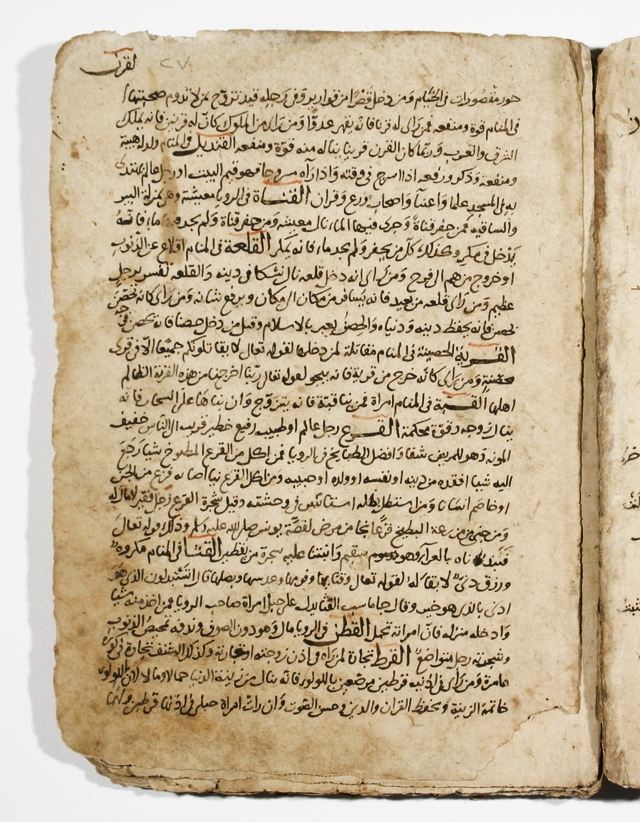 لقرن ٢٧
حور مقصورات في الخيام ومن دخل قصرا من قوارير وفي رجله قيد تزوج بمن لا تدوم صحبتها
في المنام قوة ومنفعه فمن رأى له قرنا فانه يقهر عدوا ومن رأى من الملوك كان له قرنين فانه يملك
الشرق والغرب وربما كان القرن قرينا يناله منه قوة ومنفعه القنديل في المنام ولد له هيبة
ومنفعة وذكر ورفعه اذا اسرج في وقته واذا رآه مسروجا فهو قيم البيت او رجل عالم يهتدى
به في المسجد علما واغنيآ واصحاب ورع وقران القناة في الرويا معيشة وهي بمنزلة البير
والساقيه فمن حفر قناة وجرى فيها الماء نال معيشه ومن حفر قناة ولم يجد فيها ماء فانه
يدخل في مكر وكذلك كل من يحفر ولم يجد ما فانه يمكر القلعة في المنام اقلاع عن الذنوب
او خروج من هم الى فرح ومن رأى انه دخل قلعه نال نسكا في دينه والقلعه تفسر برجل
عظيم ومن رأى قلعه من بعيد فانه يسافر من مكان الى مكان ويرفع شانه ومن رأى كانه تحصن
بحصن فانه يحفظ دينه ودنياه والحصن يعبر بالاسلام وقيل من دخل حصنا فانه يحصن فرجه
القرية الحصينة في المنام مقاتلة لمن دخلها لقوله تعالى لا يقاتلونكم جميعا الا في قرى
محصنة ومن رأى كانه خرج من قرية فانه ينجو لقوله تعالى ربنا اخرجنا من هذه القرية الظالم
اهلها القبة في المنام امراة فمن بنا قبة فانه يتزوج وان بناها على السحاب فانه
ينال رفعه وقوة بحكمة القرع رجل عالم او طبيب رفيع خطير قريب الى الناس خفيف
المونه وهو للمريض شفا وافضل الطبايخ في الرويا فمن اكل من القرع المطبوخ شيا رجع
اليه شيئا افقده من دينه او نفسه او ولده او حبيبه ومن اكل القرع نيا اصابه فزع من الجن
او خاصم انسانا ومن استظل بظله استانس في وحشته وقيل شجرة القرع رجل فقير
قرعا نجا من مرض لقصة يونس صلى الله عليه وسلم وذلك قوله تعالى
فنبذناه بالعرا وهو سقيم وانبتنا عليه شجرة من يقطين القثا في المنام مكروه
ورزق دني لا بقا له لقوله تعالى وقثايها وفومها وعدسها وبصلها قال اتستبدلون الذي هو
ادنى بالذي هو خير وقال جاماسب القثا يدل على حبل امراة صاحب الرويا فمن اخذ منه شيا
وادخله منزله فان امراته تحمل القطن في الرويا مال وهو دون الصوف وندفه تمحيص الذنوب
وشجرته رجل متواضع القرط تجارة لمن راه في اذن زوجته او جاريته وكذلك الشنف تجارة في كورة
عامرة ومن رأى في اذنيه قرطين مرصعين باللولو فانه ينال من زينة الدنيا جمالا وما لا لان اللولو
خاتمة الزينة ويحفظ القران والدين وحسن الصوت وان رات امراة حبلى في اذنها قرطين